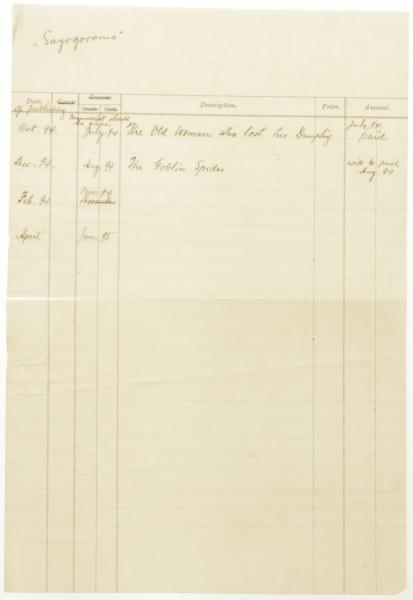 "Sayogoromo"
Date. Description. Price. Amount.
of publication manuscript should be given
Oct. 94. July. 94 The Old Woman who lost his Dumpling July, 94. paid
Dec. 94. Aug. 94 The Goblin Spider will be paid Aug. 94
Feb. 94 Nov. 94.
April Jan. 95